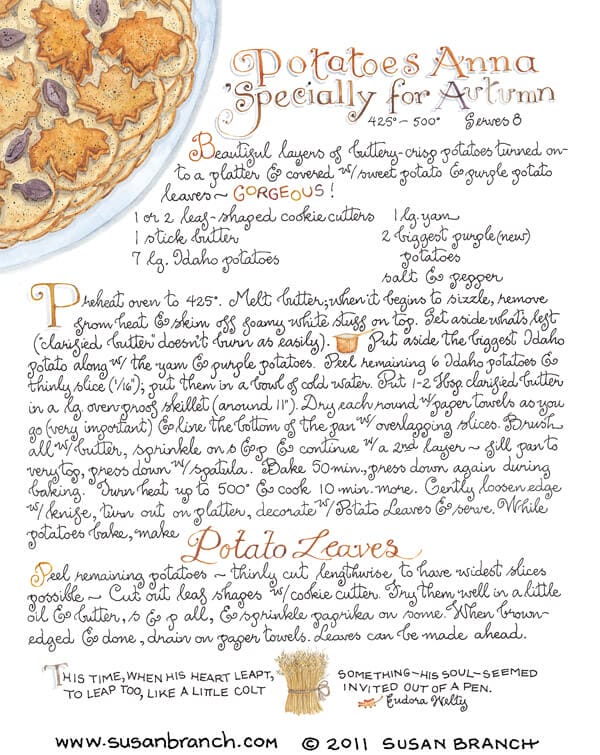 Potatoes Anna
'Specially for Autumn
425° – 500°   Serves 8
Beautiful layers of buttery-crisp potatoes turned on-
to a platter & covered w/ sweet potato & purple potato
leaves ~ GORGEOUS!
1 or 2 leaf-shaped cookie cutters   1 lg. yam
1 stick butter   2 biggest purple (new)
7 lg. Idaho potatoes   potatoes
salt & pepper
Preheat oven to 425°. Melt butter; when it begins to sizzle, remove
from heat & skim off foamy white stuff on top. Set aside what's left
("clarified butter" doesn't burn as easily). Put aside the biggest Idaho
potato along w/ the yam & purple potatoes. Peel remaining 6 Idaho potatoes &
thinly slice (1/16"); put them in a bowl of cold water. Put 1-2 tbsp. clarified butter
in a lg. ovenproof skillet (around 11"). Dry each round w/ paper towels as you
go (very important) & line the bottom of the pan w/ overlapping slices. Brush
all w/ butter, sprinkle on s & p & continue w/ a 2nd layer ~ fill pan to
very top, press down w/ spatula. Bake 50 min., press down again during
baking. Turn heat up to 500° & cook 10 min. more. Gently loosen edge
w/ knife, turn out on platter, decorate w/ Potato Leaves & serve. While
potatoes bake, make
Potato Leaves
Peel remaining potatoes ~ thinly cut lengthwise to have widest slices
possible ~ Cut out leaf shapes w/ cookie cutter. Fry them well in a little
oil & butter, s & p all, & sprinkle paprika on some. When brown-
edged & done, drain on paper towels. Leaves can be made ahead.
THIS TIME, WHEN HIS HEART LEAPT, SOMETHING – HIS SOUL – SEEMED
TO LEAP TOO, LIKE A LITTLE COLT INVITED OUT OF A PEN.
Eudora Welty
www.susanbranch.com © 2011 SUSAN BRANCH